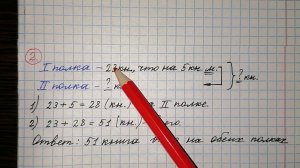 2
I полка – 23 кн., что на 5 кн. м. } ? кн.
II полка – ? кн.
1) 23 + 5 = 28 (кн.) на II полке.
2) 23 + 28 = 51 (кн.)
Ответ: 51 книга на обеих полках